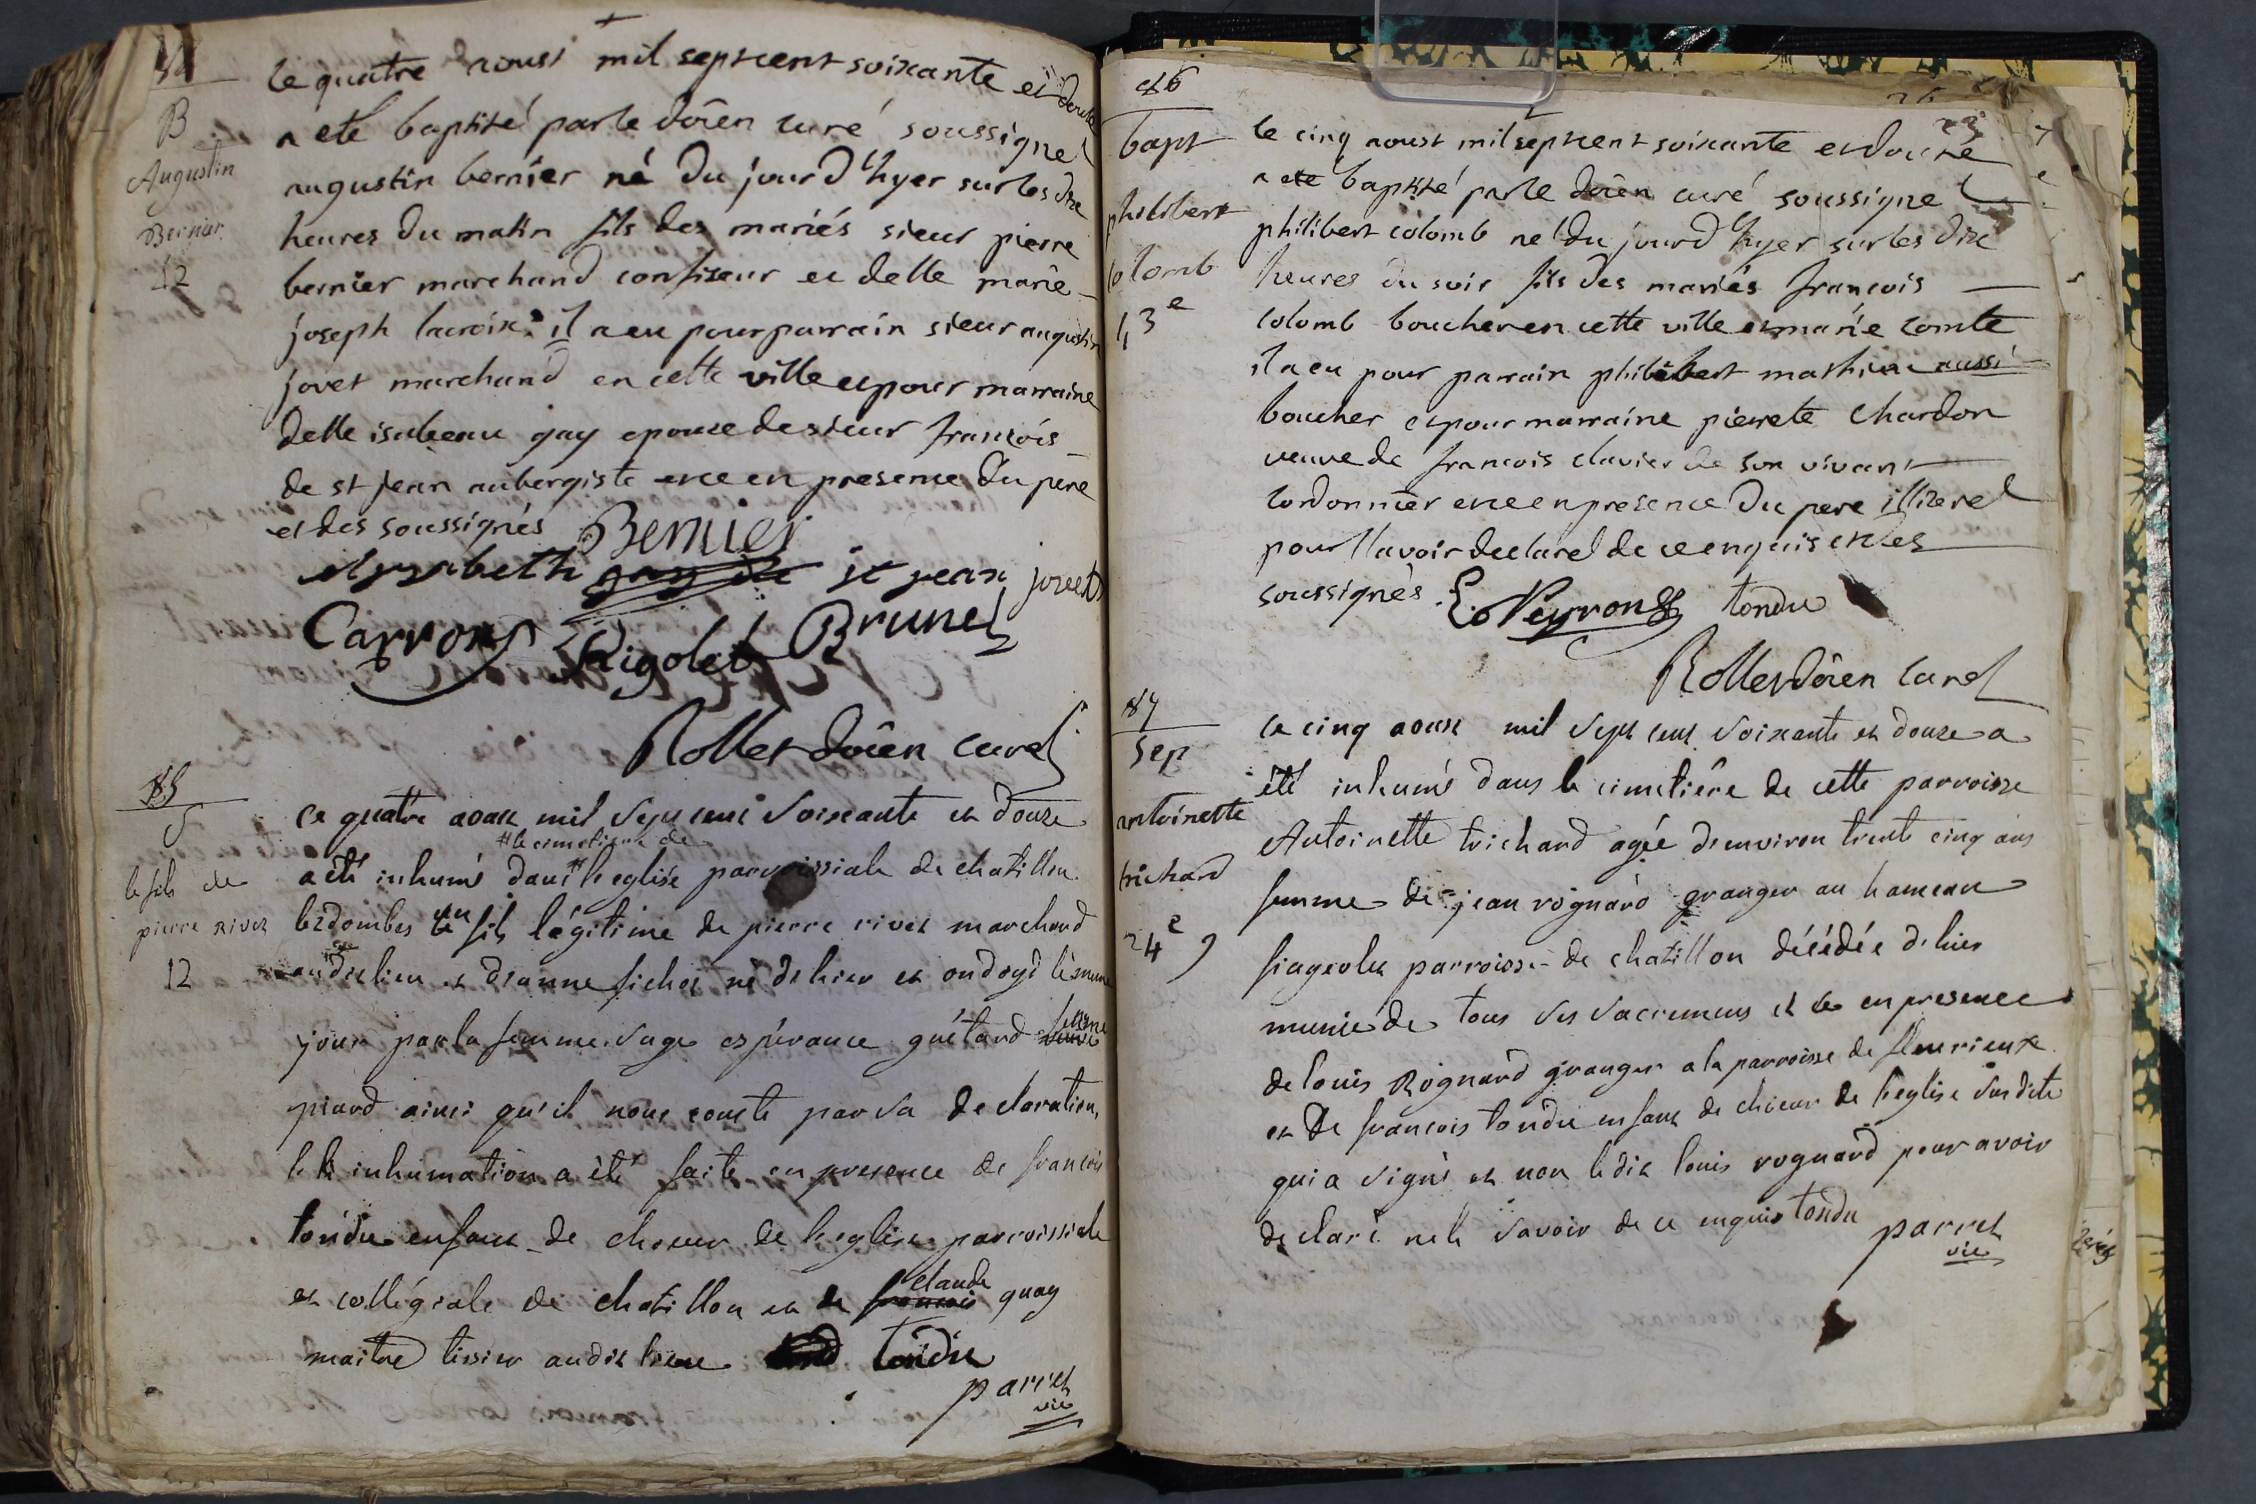 B
Augustin
Bernier
12
le quatre aoust mil septcent soixante et douze
a eté baptisé par le doïen curé soussigné
augustin bernier né du jourd'hyer sur les dix
heures du matin fils des mariés sieur pierre
bernier marchand confiseur et delle marie
joseph lacroix. il a eu pour parrain sieur augustin
jovet marchand en cette ville et pour marraine
delle isabeau gay epouse de sieur françois
de st jean aubergiste ce en presence du pere
et des soussignés Bernier
elysabeth gay de st jean jovet
Carron Rigolet Brunet
Rollet doïen curé
85
S
le fils de
pierre rivet
12
ce quatre aoust mil sept cent soixante et douze
# le cimetiere de
a été inhumé dans # l'eglise parroissiale de chatillon
lesdombes un fils légitime de pierre rivet marchand
audit lieu et d'anne fichet né d'hier et ondoyé le meme
jour par la femme sage espérance guétand femme
piard ainsi qu'il nous conste par sa declaration,
la inhumation a été faite en presence de francois
tondu enfant de choeur de l'eglise parroissiale
et collégiale de chatillon et de francois claude quay
maitre tissier audit lieu tondu
parret
vic
86
bapt
philibert
colomb
13e
23
le cinq aoust mil septcent soixante et douze
a eté baptisé par le doïen curé soussigné
philibert colomb né du jourd'hyer sur les dix
heures du soir fils des mariés francois
colomb boucher en cette ville et marie comte
il a eu pour parrain philibert mathieu aussi
boucher et pour marraine pierrete chardon
veuve de francois clavier de son vivant
cordonnier ce en presence du pere illiteré
pour l'avoir declaré de ce enquis et des
soussignés E. Peyron tondu
Rollet doïen curé
87
sep
antoinette
trichard
24e
ce cinq aoust mil sept cent soixante et douze a
été inhumé dans le cimetiére de cette parroisse
Antoinette trichard agée d'environ trente cinq ans
femme de jean rognard granger au hameau
fiageolet parroisse de chatillon décédée d'hier
munie de tous ses sacremens et ce en presence
de louis Rognard granger a la parroisse de fleurieux
et de francois tondu enfant de choeur de l'eglise susdite
qui a signé et non ledit louis rognard pour avoir
declaré ne le savoir de ce enquis tondu
parret
vic